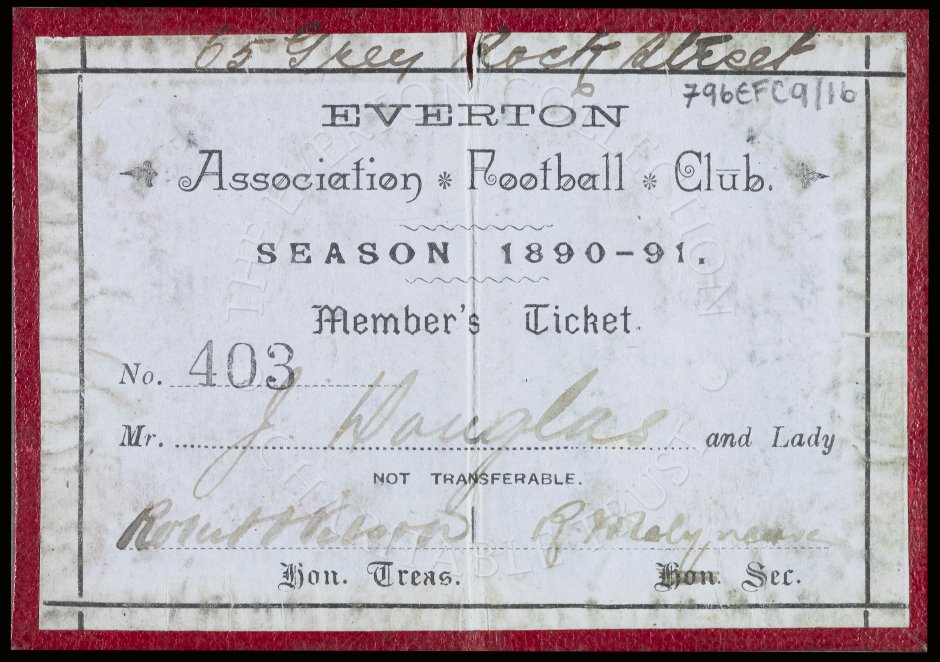 65 Grey Rock Street
796EFC9/16
EVERTON
Association * Football * Club.
SEASON 1890-91.
Member's Ticket.
No. 403
Mr. J. Douglas and Lady
NOT TRANSFERABLE.
Robert Wilson R. Molyneux
Hon. Treas. Hon. Sec.
THE EVERTON COLLECTION
CHARITABLE TRUST